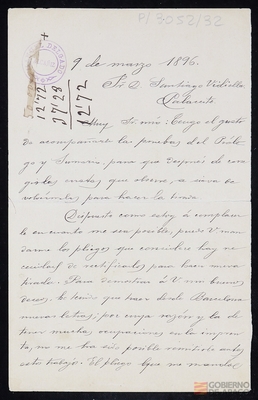 P/3-252/32
9 de marzo 1896.
Sr. D. Santiago Vidiella
Calaceite
12'72
37'28
12'72
Muy Sr. mío: Tengo el gusto
de acompañarle las pruebas del Prólo-
go y Sumario, para que después de corre-
gidas erratas que observe, se sirva de-
volvérmelas para hacer la tirada.
Dispuesto como estoy á complacer-
le en cuanto me sea posible, puede V. man-
darme los pliegos que considere hay ne-
cesidad de rectificarlos para hacer nueva
tirada. Para demostrar á V. mis buenos
deseos, he tenido que hacer desde Barcelona
nuevas letras; por cuya razón y la de
tener muchas ocupaciones en la impren-
ta, no me ha sido posible remitirle antes
este trabajo. El pliego que me manda
GOBIERNO
DE ARAGON